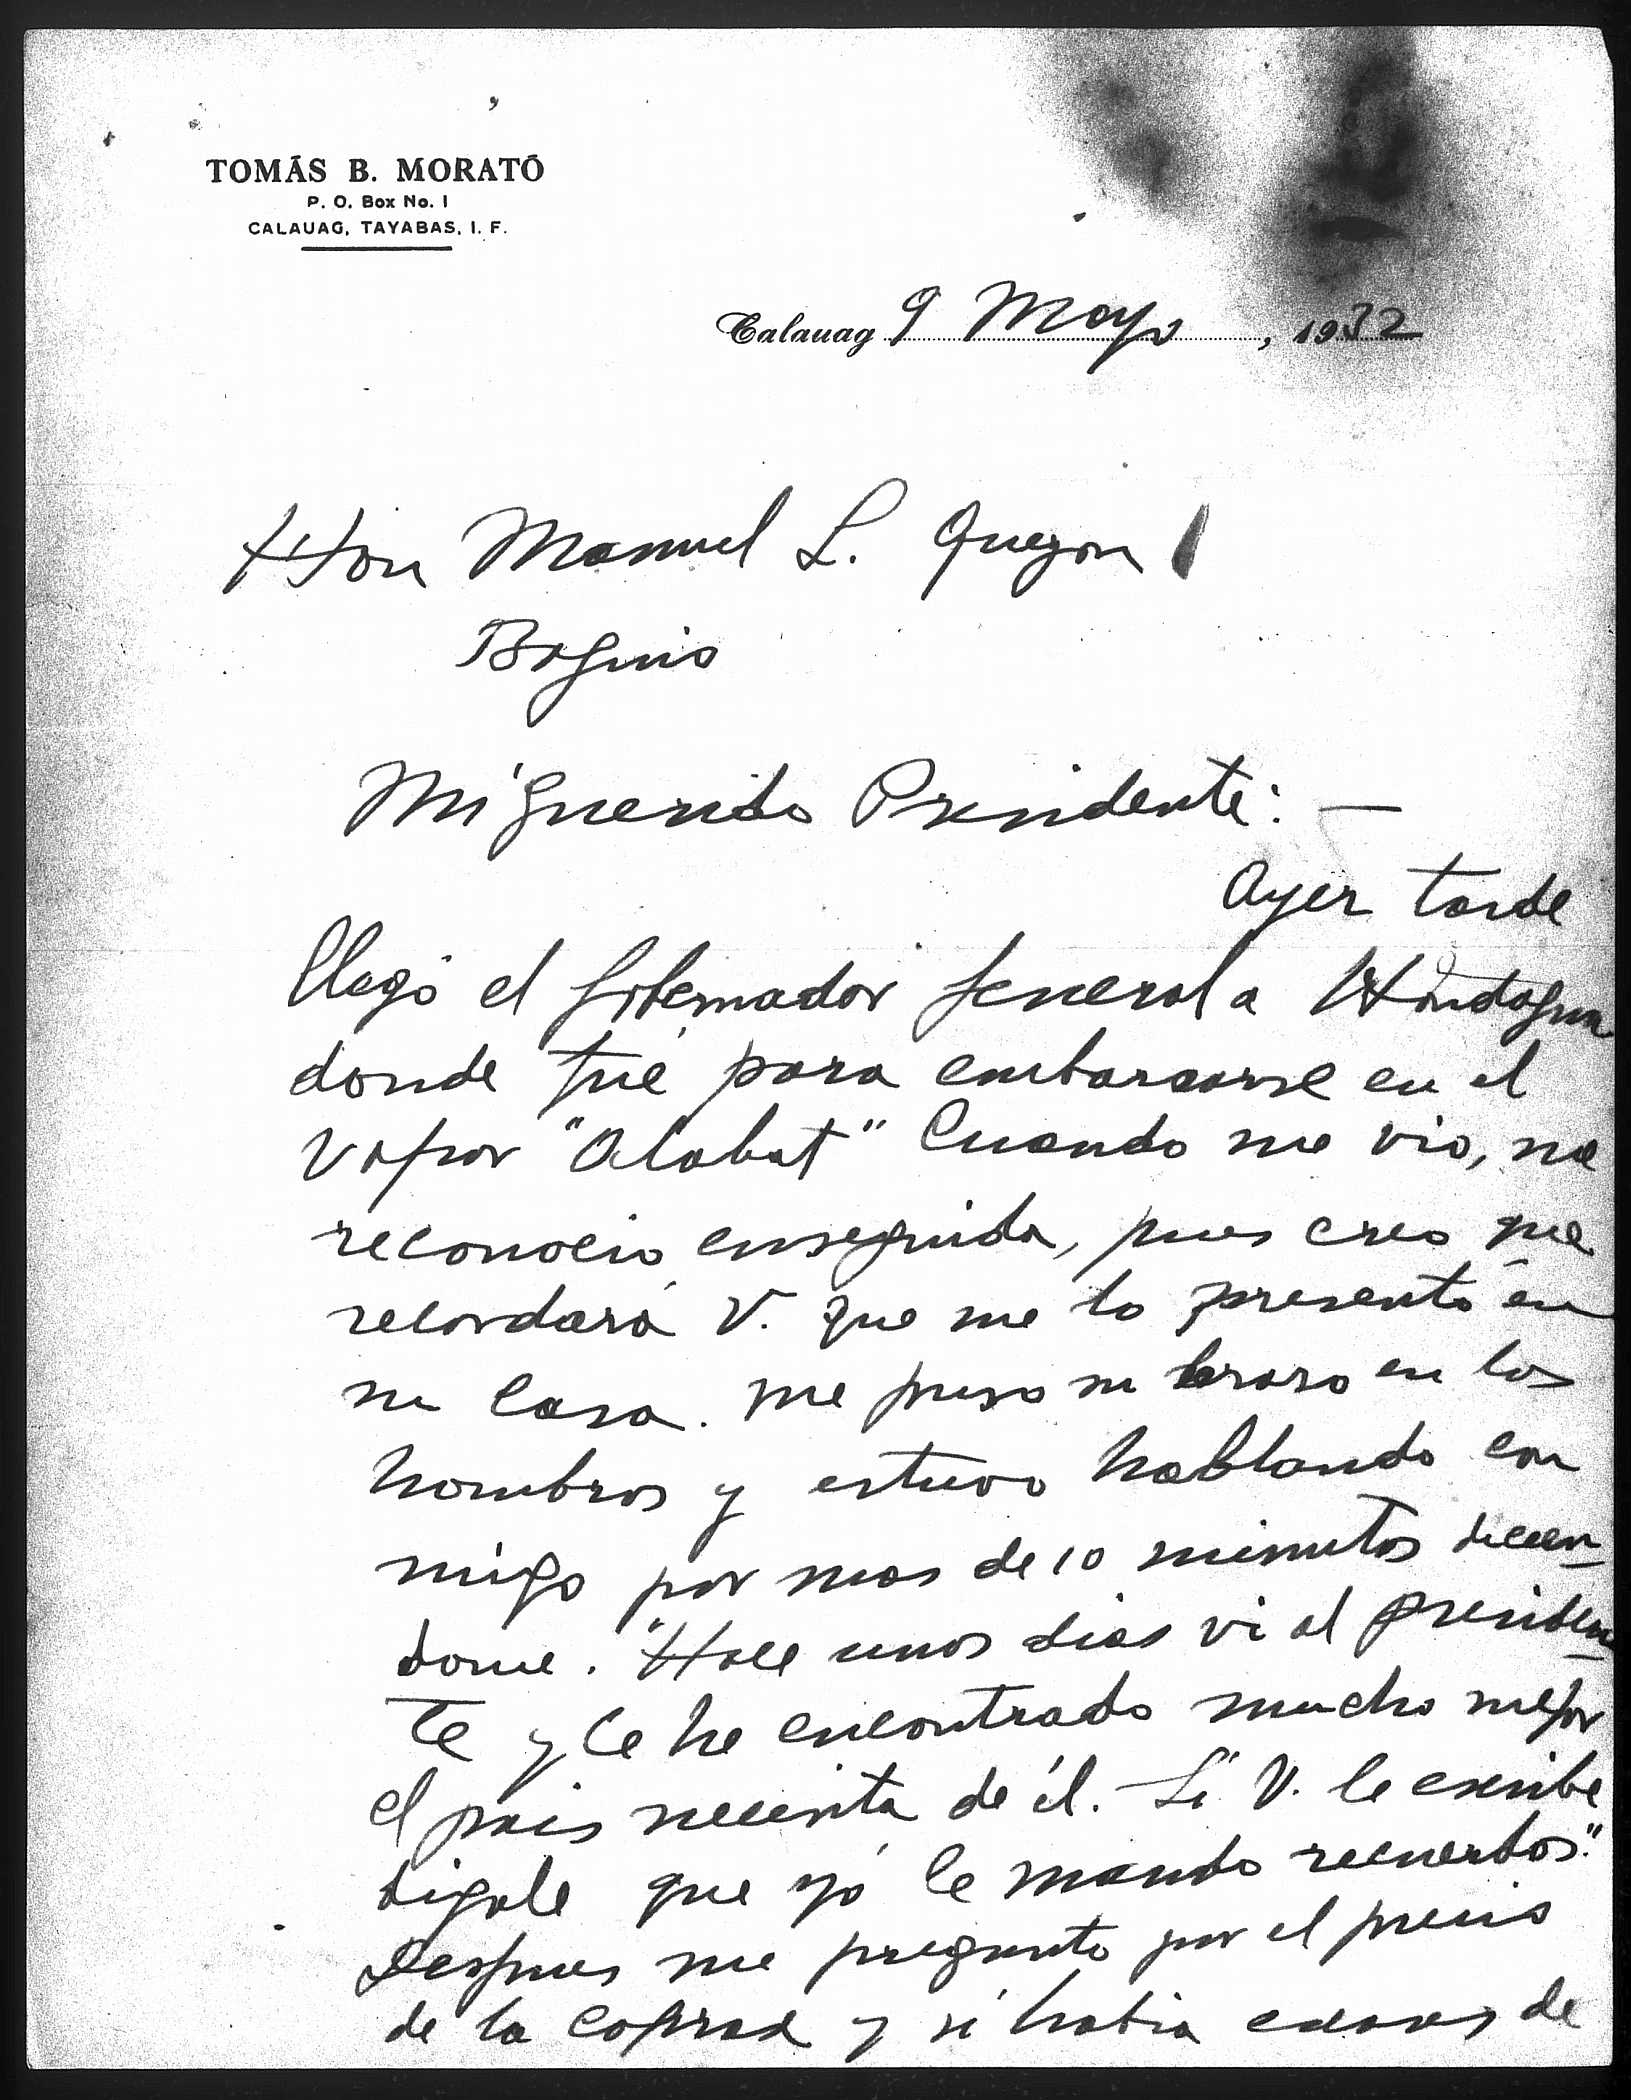 TOMÁS B. MORATÓ
P. O. Box No. 1
CALAUAG, TAYABAS, I. F.
Calauag 9 Mayo, 1932
Hon Manuel L. Quezon
Baguio
Mi querido Presidente: —
Ayer tarde
llegó el Gobernador General a Hondagua
donde fué para embarcarse en el
vapor "Alabat" Cuando me vio, me
reconocio enseguida, pues creo que
recordará V. que me lo presentó en
su casa. Me puso su brazo en los
hombros y estuvo hablando con
migo por mas de 10 minutos dicien-
dome. "Hace unos dias vi al presiden-
te y le he encontrado mucho mejor
el pais necesita de él. Si V. le escribe
digale que yó le mando recuerdos".
Despues me pregunto por el precio
de la coprax y si habia casos de